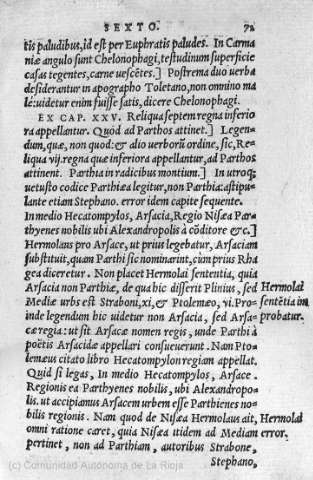 SEXTO. 72
tis paludibus, id est per Euphratis paludes. In Carma
niæ angulo sunt Chelonophagi, testudinum superficie
casas tegentes, carne uescẽtes.] Postrema duo uerba
desiderantur in apographo Toletano, non omnino ma
le: uidetur enim fuisse satis, dicere Chelonophagi.
EX CAP. XXV. Reliqua septem regna inferio
ra appellantur. Quòd ad Parthos attinet.] Legen-
dum, quæ, non quod: & alio uerborũ ordine, sic, Re-
liqua vij. regna quæ inferiora appellantur, ad Parthos
attinent. Parthia in radicibus montium.] In utroq;
uetusto codice Parthiæa legitur, non Parthia: astipu-
lante etiam Stephano. error idem capite sequente.
In medio Hecatompylos, Arsacia, Regio Nisæa Par-
thyenes nobilis ubi Alexandropolis à cõditore &c.]
Hermolaus pro Arsace, ut prius legebatur, Arsaciam
substituit, quam Parthi sic nominarint, cùm prius Rha
gea diceretur. Non placet Hermolai sententia, quia
Arsacia non Parthiæ, de qua hic disserit Plinius, sed
Mediæ urbs est Straboni, xi, & Ptolemæo, vi. Pro-
inde legendum hic uidetur non Arsacia, sed Arsa-
cæ regia: ut sit Arsacæ nomen regis, unde Parthi à
poëtis Arsacidæ appellari consueuerunt. Nam Pto-
lemæus citato libro Hecatompylon regiam appellat.
Quid si legas, In medio Hecatompylos, Arsace.
Regionis ea Parthyenes nobilis, ubi Alexandropo-
lis. ut accipiamus Arsacem urbem esse Parthienes no-
bilis regionis. Nam quod de Nisæa Hermolaus ait,
omni ratione caret, quia Nisæa itidem ad Mediam
pertinet, non ad Parthiam, autoribus Strabone,
Stephano,
Hermolai
sentẽtia im
probatur.
Hermolai
error.
(c) Comunidad Autónoma de La Rioja